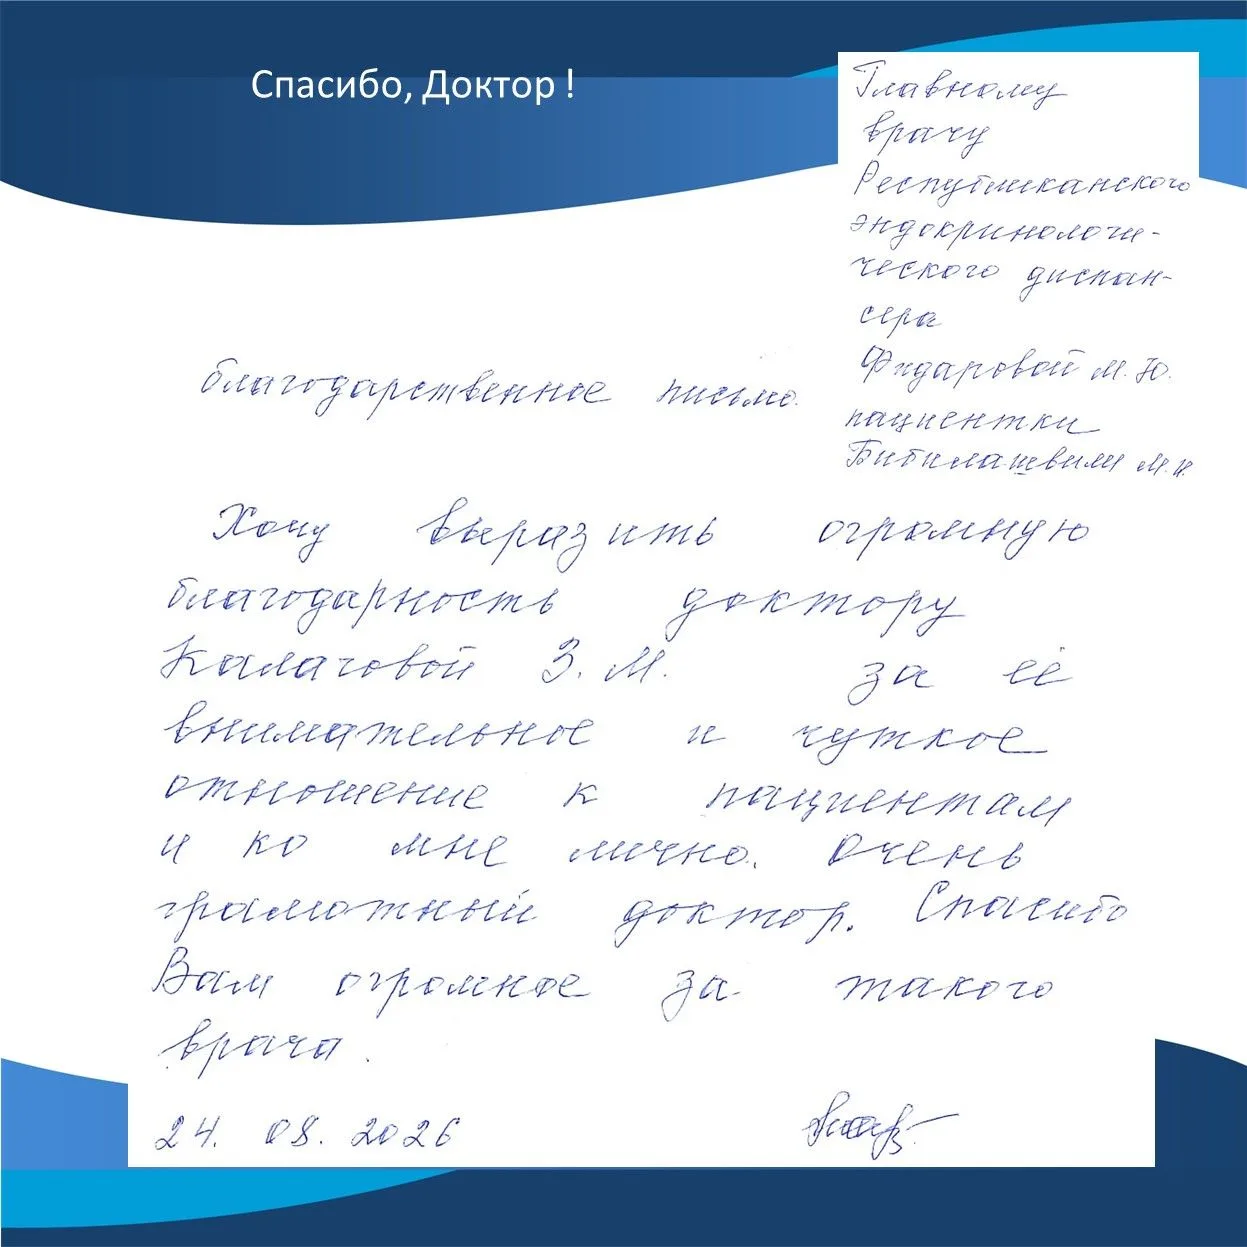 Спасибо, Доктор !
Главному
врачу
Республиканского
эндокринологи-
ческого диспан-
сера
Фидаровой М.Ю.
пациентки
Бибилашвили М.И.
благодарственное письмо.
Хочу выразить огромную
благодарность доктору
Калаговой З.М. за её
внимательное и чуткое
отношение к пациентам
и ко мне лично. Очень
грамотный доктор. Спасибо
Вам огромное за такого
врача.
24. 08. 2026